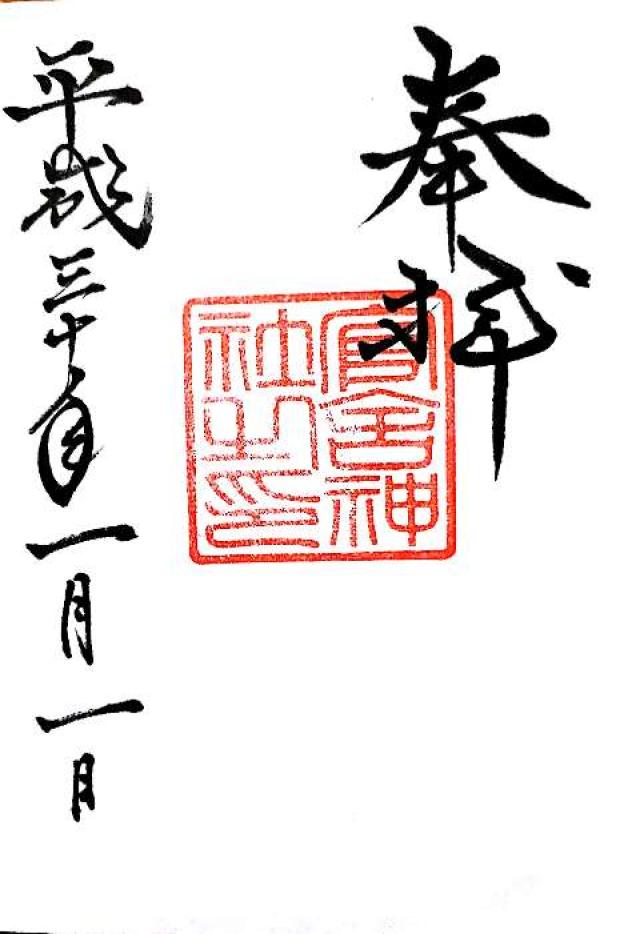 奉拝
官舎神
社之印
平成三十年一月一日